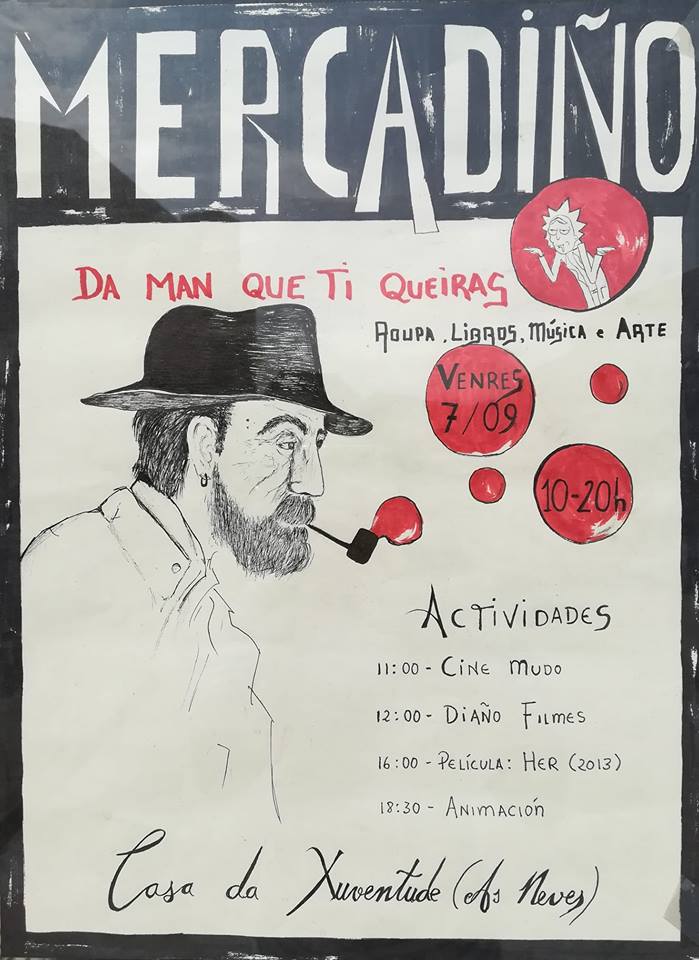 MERCADIÑO
DA MAN QUE TI QUEIRAS
ROUPA, LIBROS, MÚSICA e ARTE
VENRES
7/09
10-20h
ACTIVIDADES
11:00 - CINE MUDO
12:00 - DIAÑO FILMES
16:00 - PELÍCULA: HER (2013)
18:30 - ANIMACIÓN
Casa da Xuventude (As Neves)